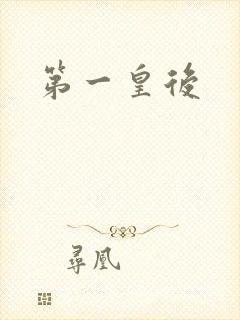 第一皇後
尋凰